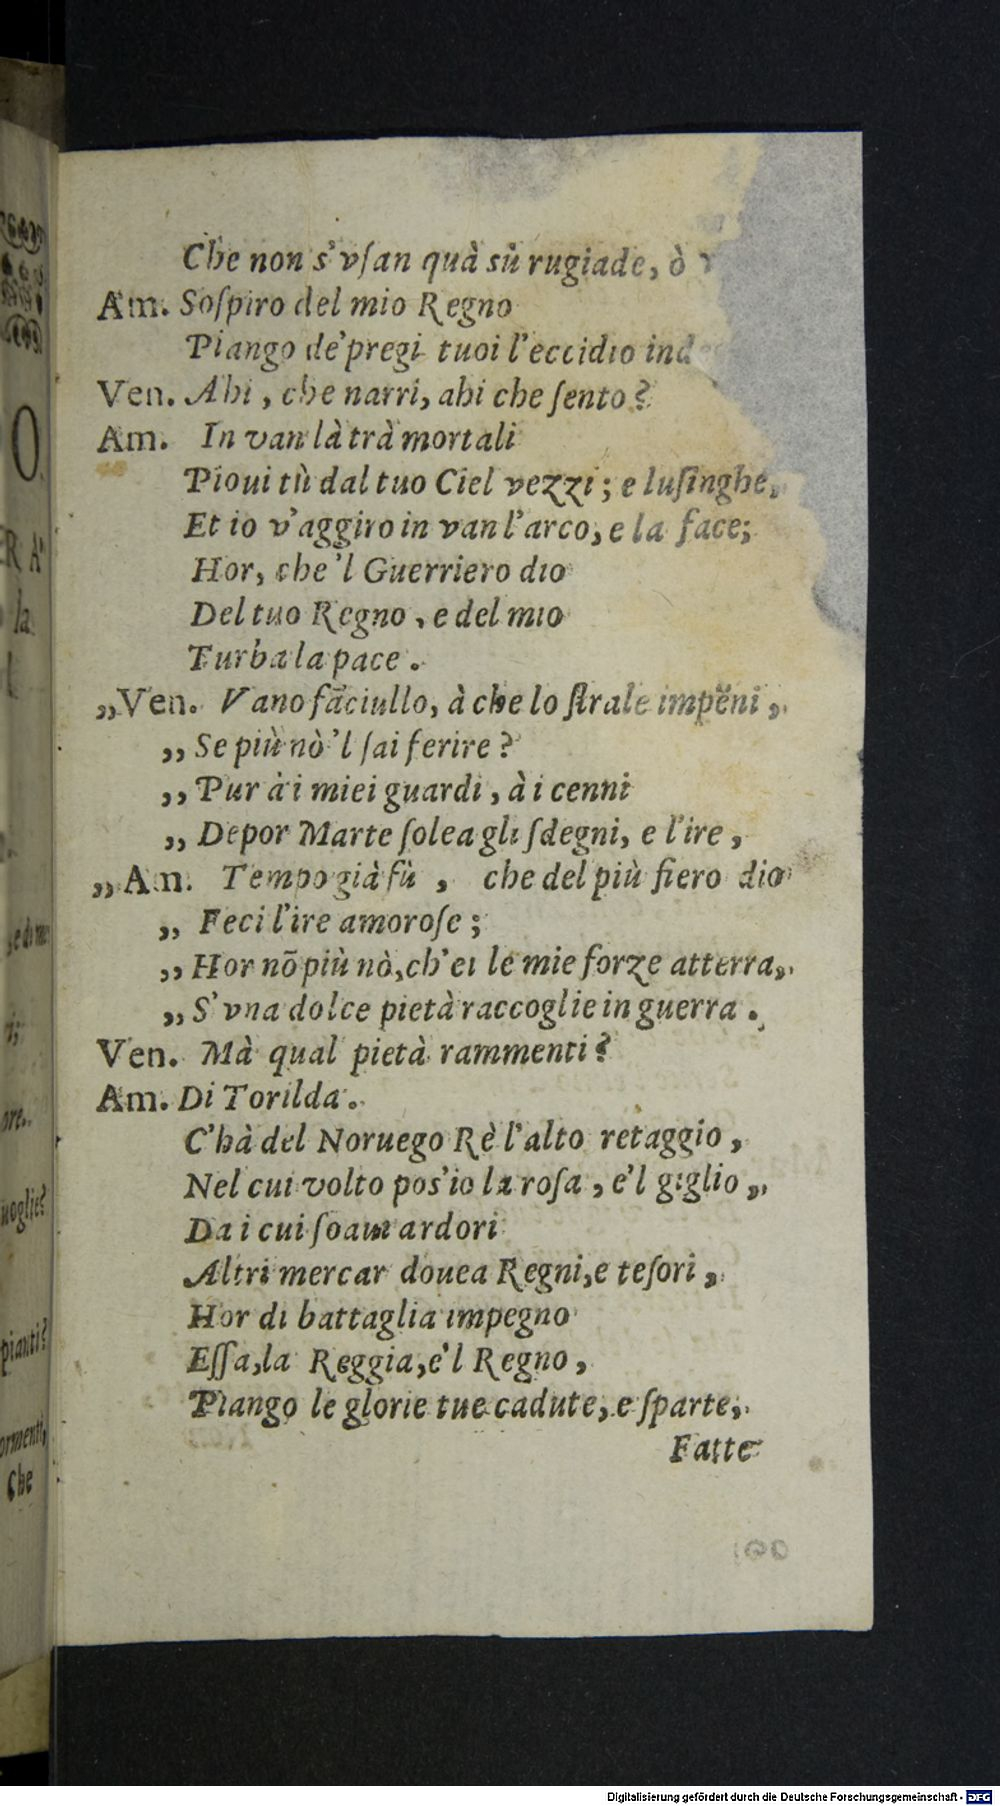 Che non s'vſan quà sù rugiade, ò
Am. Soſpiro del mio Regno
Piango de' pregi tuoi l'eccidio
Ven. Ahi, che narri, ahi che ſento?
Am. In van là trà mortali
Pioui tù dal tuo Ciel vezzi; e luſinghe,
Et io v'aggiro in van l'arco, e la face;
Hor, che 'l Guerriero dio
Del tuo Regno, e del mio
Turba la pace.
„Ven. Vano fāciullo, à che lo ſtrale impēni,
„ Se più nò 'l ſai ferire?
„ Pur à i miei guardi, à i cenni
„ Depor Marte ſolea gli ſdegni, e l'ire,
„Am. Tempo già fù, che del più fiero dio
„ Feci l'ire amoroſe;
„ Hor nō più nò, ch'ei le mie forze atterra,
„ S'vna dolce pietà raccoglie in guerra.
Ven. Mà qual pietà rammenti?
Am. Di Torilda.
C'hà del Noruego Rè l'alto retaggio,
Nel cui volto pos'io la roſa, e'l giglio,
Da i cui ſoaui ardori
Altri mercar douea Regni, e teſori,
Hor di battaglia impegno
Eſſa, la Reggia, e'l Regno,
Piango le glorie tue cadute, e ſparte,
Fatte
O
RA'
la
noglie?
pianti?
ormenti,
Che
Digitalisierung gefördert durch die Deutsche Forschungsgemeinschaft - DFG